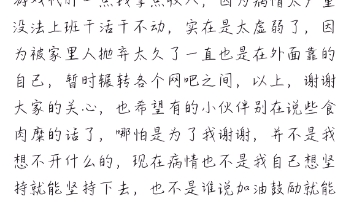 游戏代价一点我拿点收入，因为病情太严重
没法上班干活干不动，实在是太虚弱了，因
为被家里人抛弃太久了一直也是在外面靠的
自己，暂时辗转各个网吧之间，以上，谢谢
大家的关心，也希望有的小伙伴别在说些食
肉糜的话了，哪怕是为了我谢谢，并不是我
想不开什么的，现在病情也不是我自己想坚
持就能坚持下去，也不是谁说加油鼓励就能